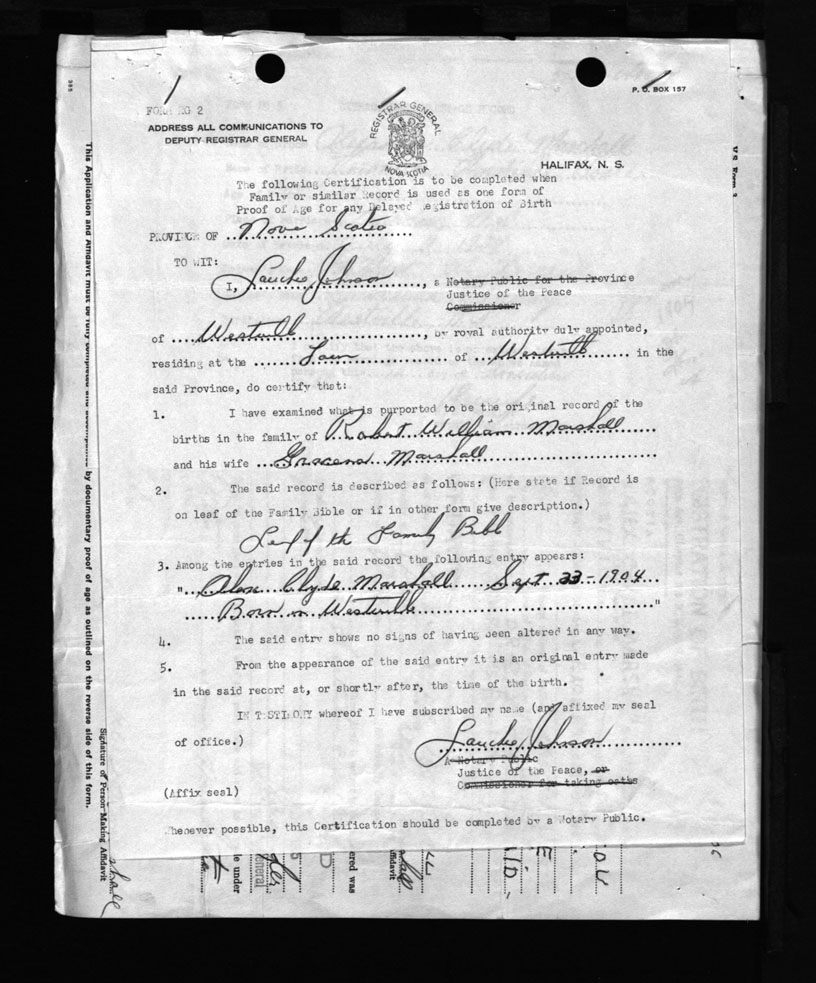 P. O. BOX 157
FORM RG 2
ADDRESS ALL COMMUNICATIONS TO
DEPUTY REGISTRAR GENERAL
REGISTRAR GENERAL
NOVA SCOTIA
HALIFAX, N. S.
The following Certification is to be completed when
Family or similar Record is used as one form of
Proof of Age for any Delayed Registration of Birth
PROVINCE OF Nova Scotia
TO WIT:
I, Lauchie Johnson, a Notary Public for the Province
Justice of the Peace
Commissioner
of Westville, by royal authority duly appointed,
residing at the Town of Westville in the
said Province, do certify that:
1. I have examined what is purported to be the original record of the
births in the family of Robert William Marshall
and his wife Marshall
2. The said record is described as follows: (Here state if Record is
on leaf of the Family Bible or if in other form give description.)
Leaf of the Family Bible
3. Among the entries in the said record the following entry appears:
" Alex Clyde Marshall Sept 23-1904
Born in Westville "
4. The said entry shows no signs of having been altered in any way.
5. From the appearance of the said entry it is an original entry made
in the said record at, or shortly after, the time of the birth.
IN TESTIMONY whereof I have subscribed my name (and affixed my seal
of office.)
Lauchie Johnson
A Notary Public
Justice of the Peace, or
Commissioner for taking oaths
(Affix seal)
Whenever possible, this Certification should be completed by a Notary Public.
This Application and Affidavit must be fully completed and accompanied by documentary proof of age as outlined on the reverse side of this form.
Signature of Person Making Affidavit
V.S. Form 3
le under
General
ered was
ffidavit